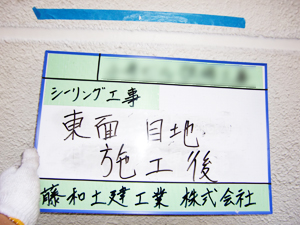 シーリング工事
東面 目地
施工後
藤和土建工業 株式会社